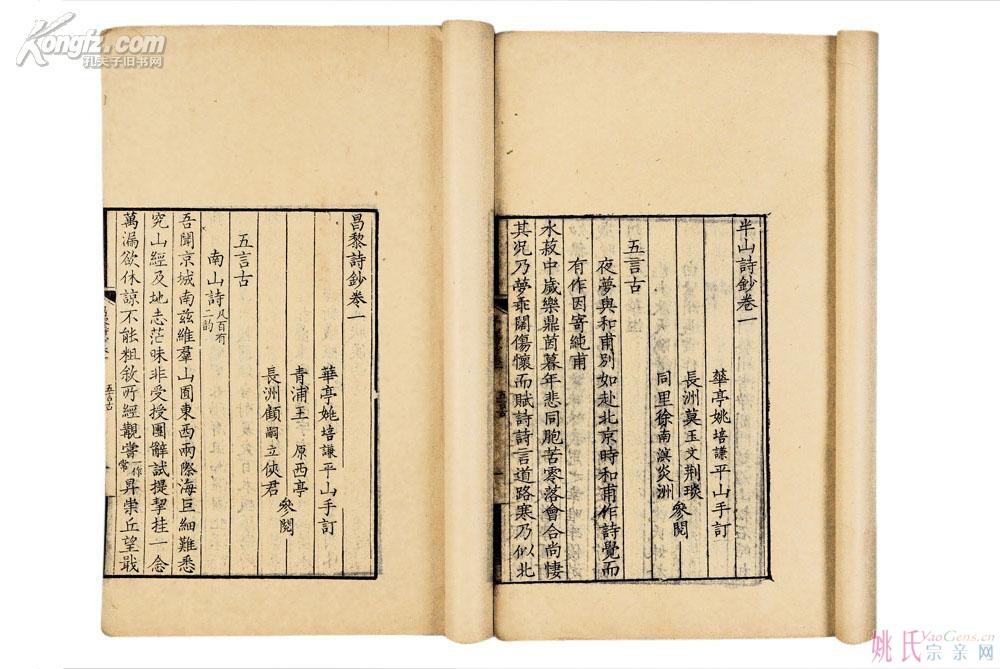 半山詩鈔卷一
華亭姚培謙平山手訂
長洲莫玉文荆琰
同里徐南滇炎洲
參閱
五言古
夜夢與和甫別如赴北京時和甫作詩覺而
有作因寄純甫
水菽中歲樂鼎茵暮年悲同胞苦零落會合尚悽
其況乃夢乖闊傷懷而賦詩詩言道路寒乃似北
昌黎詩鈔卷一
華亭姚培謙平山手訂
青浦王原西亭
長洲顧嗣立俠君
參閱
五言古
南山詩凡百有二韵
吾聞京城南茲維羣山囿東西兩際海巨細難悉
究山經及地志茫昧非受授團辭試提挈挂一念
萬漏欲休諒不能粗敘所經觀嘗一作常昇崇丘望戢
五言古
Kongfz.com
孔夫子旧书网
姚氏宗亲网
YaoGens.cn